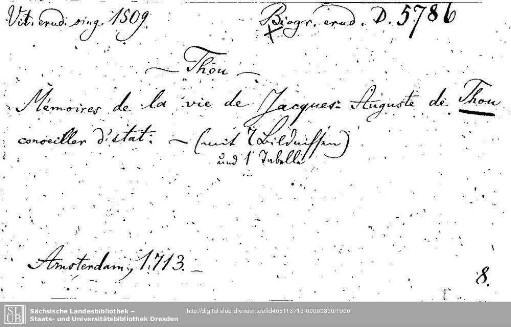 Vit. erud. sing. 1509. Biogr. erud. D. 5786
— Thou —
Mémoires de la vie de Jacques-Auguste de Thou
conseiller d'état. — (mit 7 Bildnissen)
und 1 Tabelle
Amsterdam, 1713. —
8.
Sächsische Landesbibliothek –
Staats- und Universitätsbibliothek Dresden